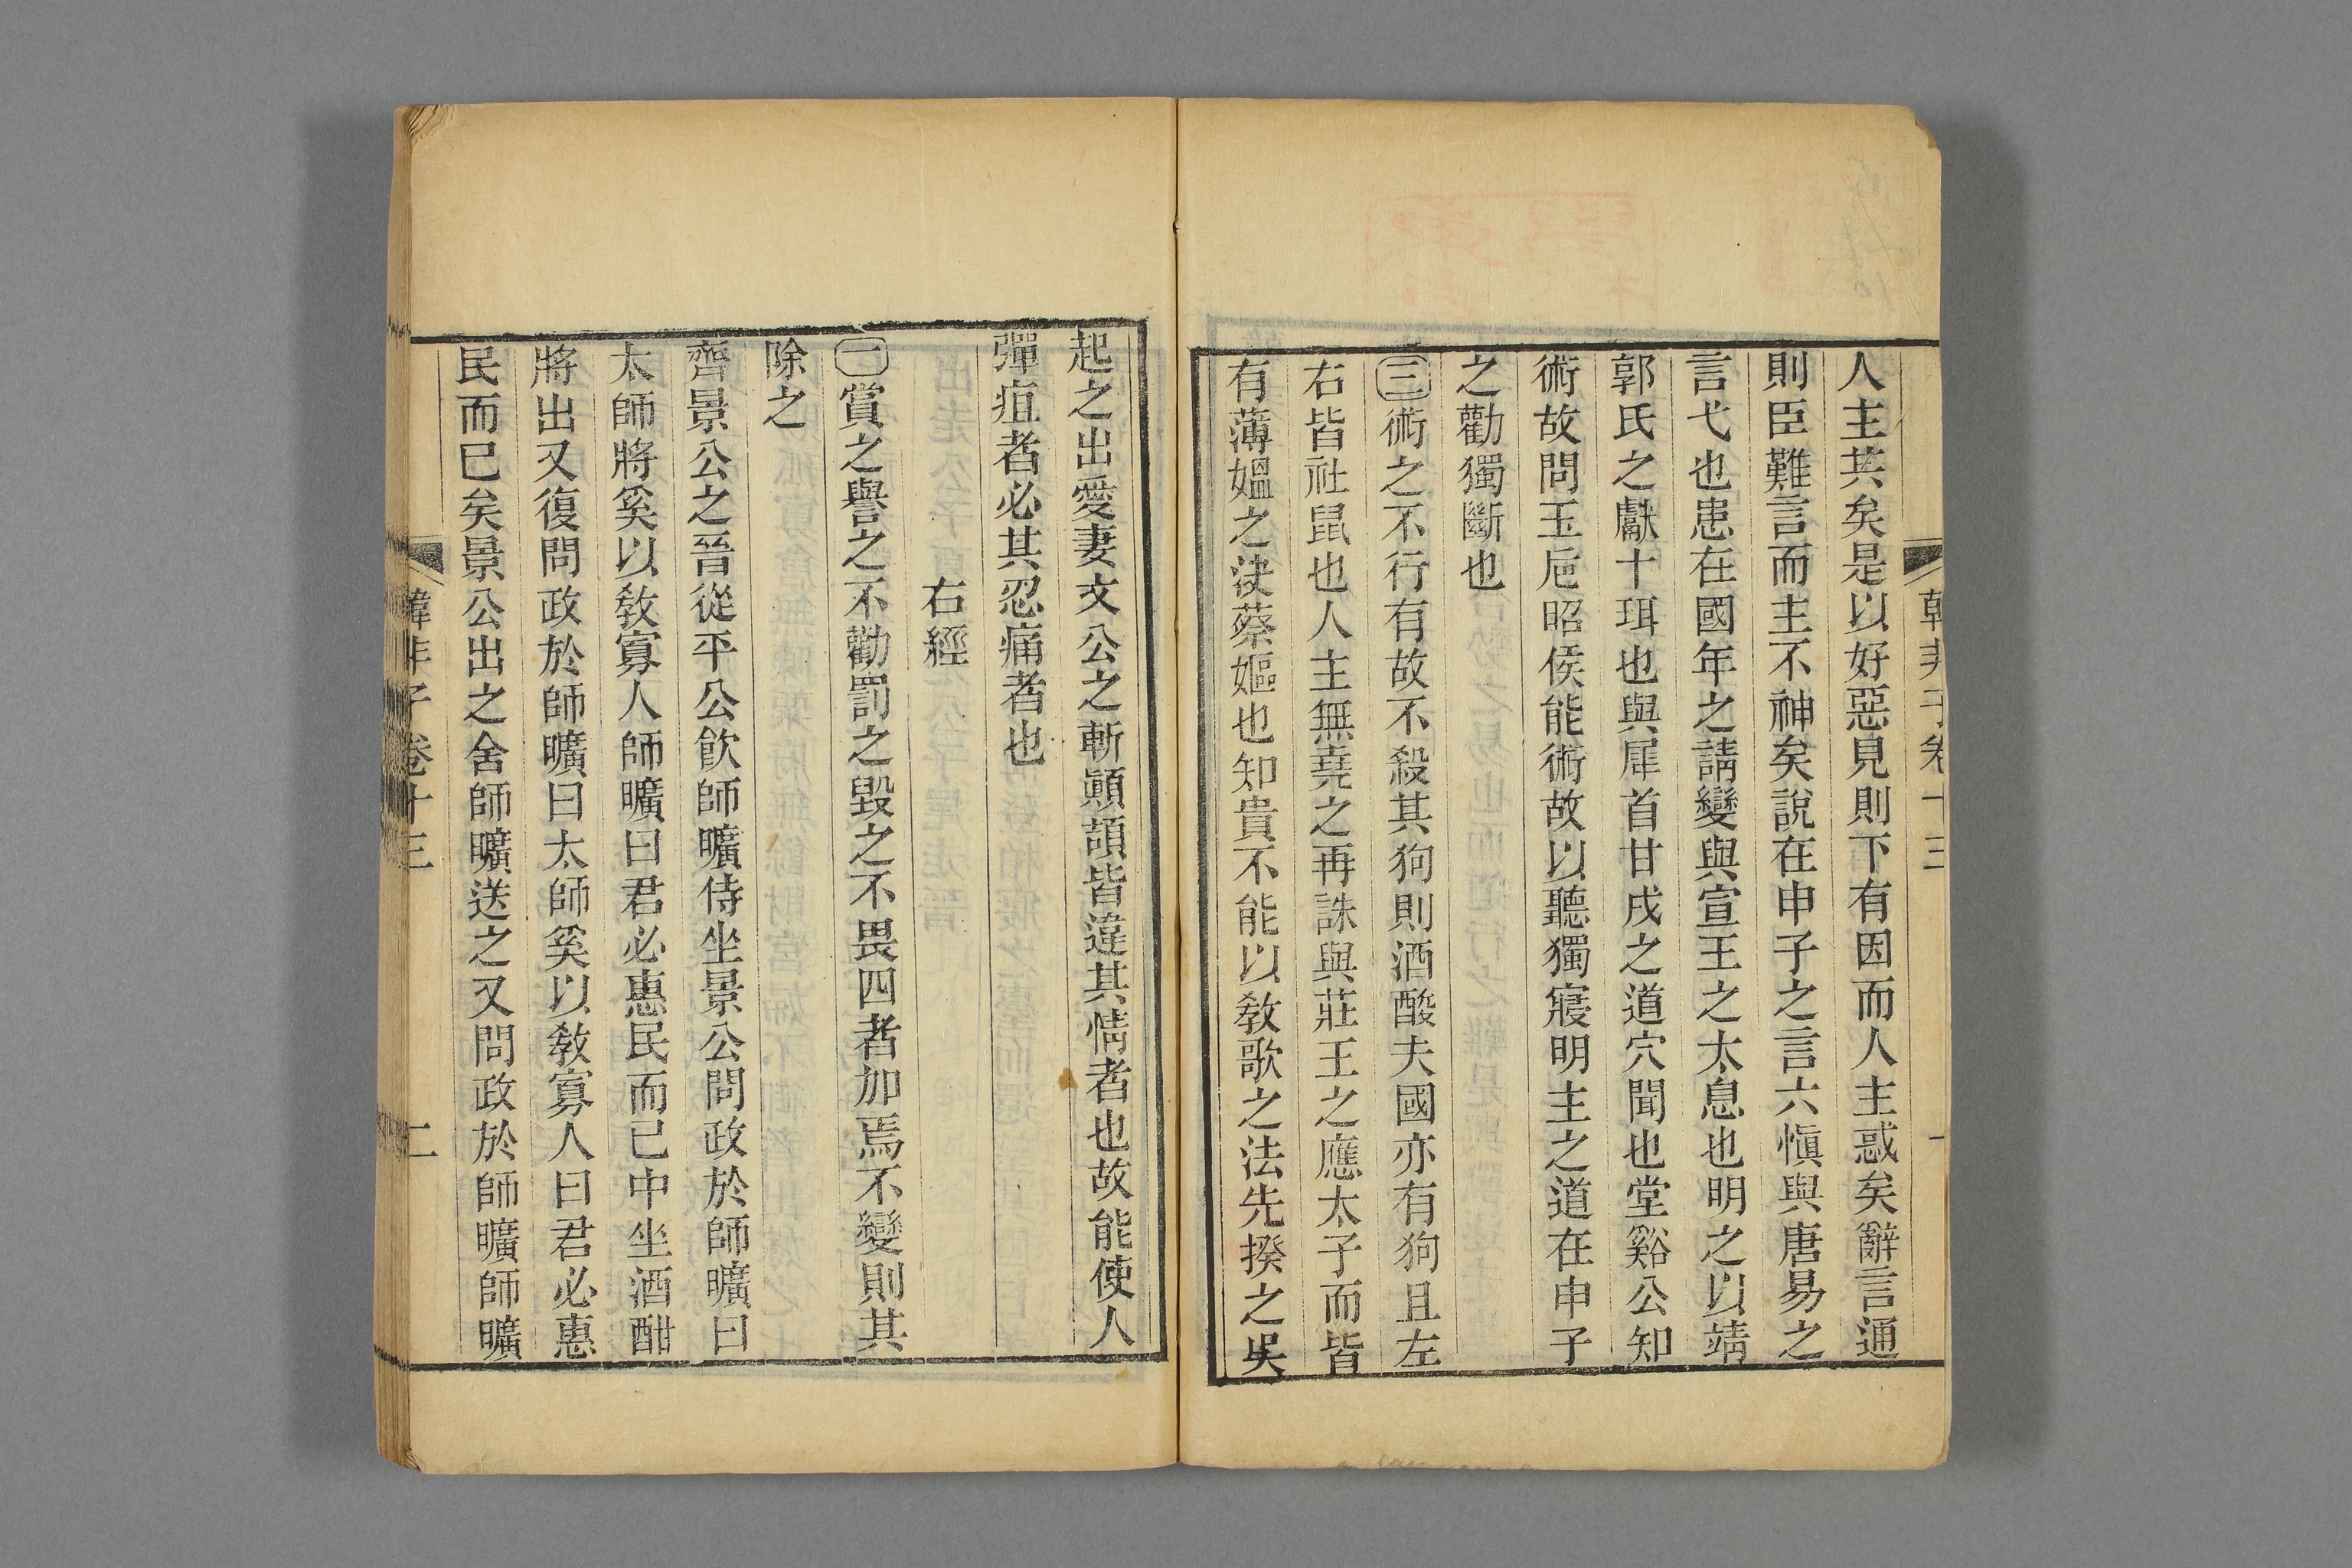 韓非子卷十三
一
人主共矣是以好惡見則下有因而人主惑矣辭言通
則臣難言而主不神矣說在申子之言六愼與唐易之
言弋也患在國年之請變與宣王之太息也明之以靖
郭氏之獻十珥也與犀首甘戌之道穴聞也堂谿公知
術故問玉巵昭侯能術故以聽獨寢明主之道在申子
之勸獨斷也
三術之不行有故不殺其狗則酒酸夫國亦有狗且左
右皆社鼠也人主無堯之再誅與莊王之應太子而皆
有薄媼之決蔡嫗也知貴不能以敎歌之法先揆之吳
起之出愛妻文公之斬顚頡皆違其情者也故能使人
彈疽者必其忍痛者也
右經
一賞之譽之不勸罰之毀之不畏四者加焉不變則其
除之
齊景公之晉從平公飮師曠侍坐景公問政於師曠曰
太師將奚以敎寡人師曠曰君必惠民而已中坐酒酣
將出又復問政於師曠曰太師奚以敎寡人曰君必惠
民而已矣景公出之舍師曠送之又問政於師曠師曠
韓非子卷十三
二